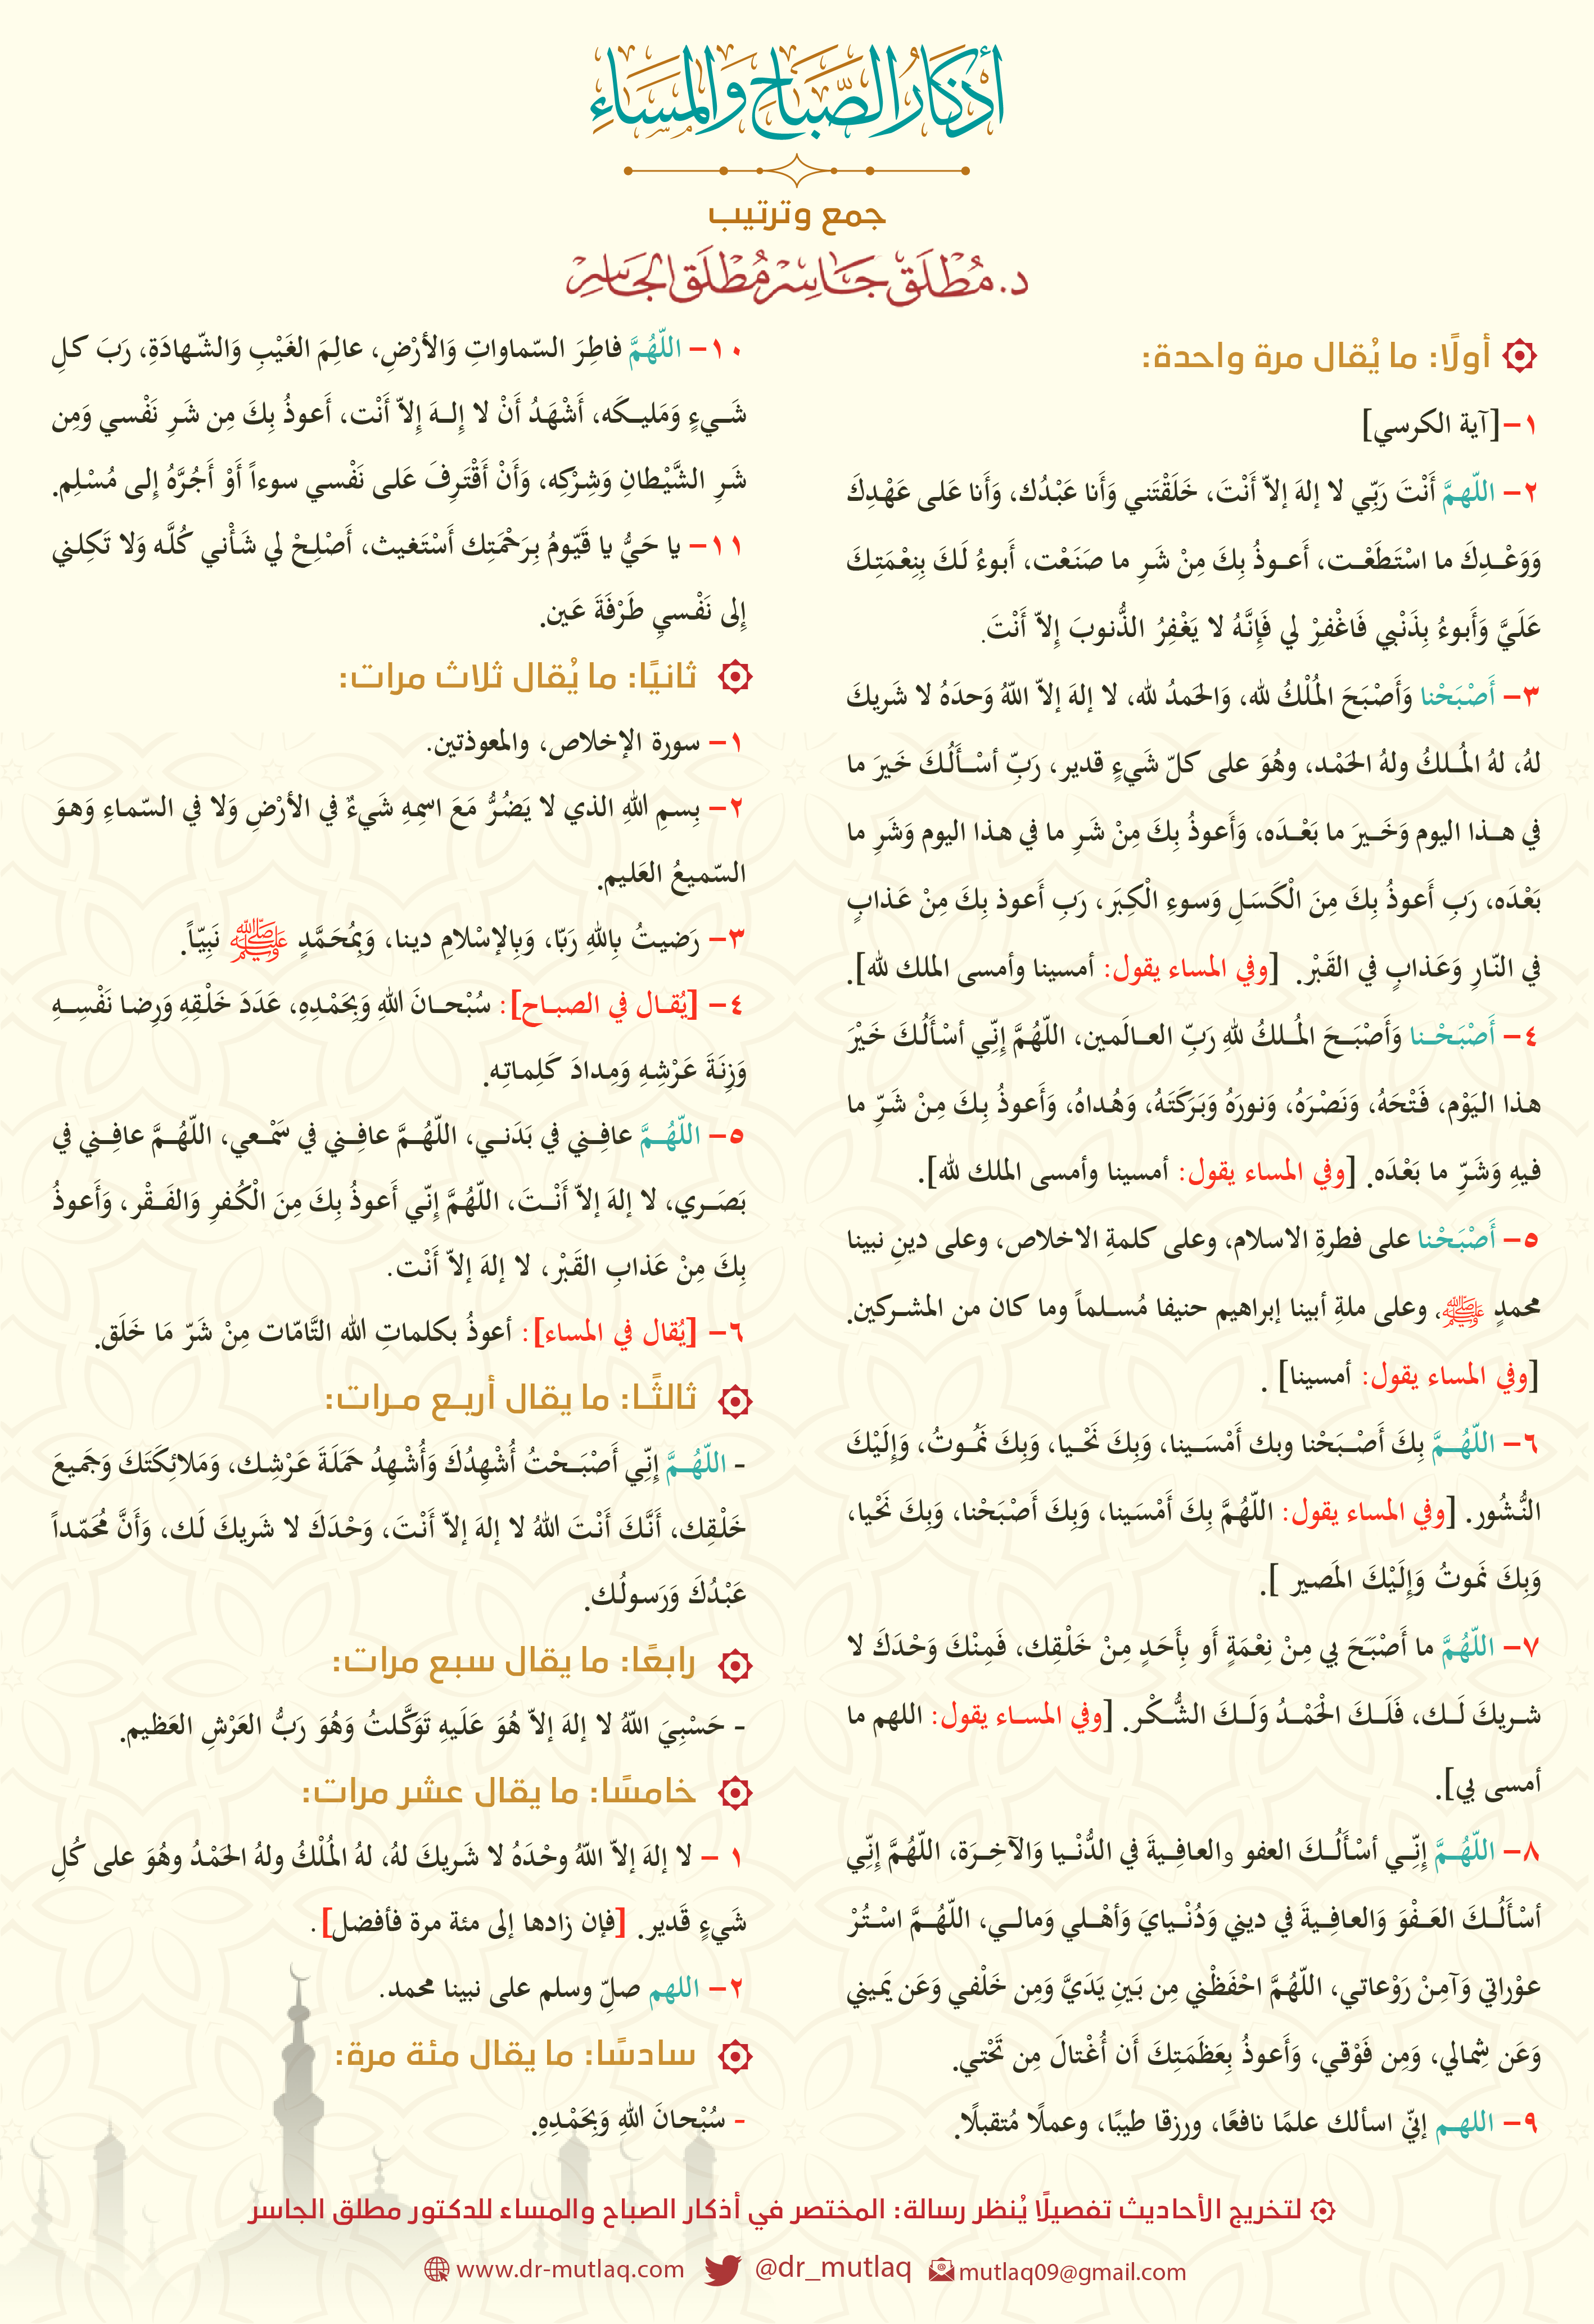 أذكار الصَّبَاحِ وَالمَسَاءِ
جمع وترتيب
د. مُطْلَق جَاسِر مُطْلَق الجَاسِر
أولًا: ما يُقال مرة واحدة:
١- [آية الكرسي]
٢- اللّهمَّ أَنْتَ رَبِّي لا إلهَ إلاّ أَنْتَ، خَلَقْتَني وَأَنا عَبْدُك، وَأَنا عَلى عَهْدِكَ
وَوَعْدِكَ ما اسْتَطَعْت، أَعوذُ بِكَ مِنْ شَرِ ما صَنَعْت، أَبوءُ لَكَ بِنِعْمَتِكَ
عَلَيَّ وَأَبوءُ بِذَنْبي فَاغْفِرْ لي فَإِنَّهُ لا يَغْفِرُ الذُّنوبَ إِلاّ أَنْتَ.
٣- أَصْبَحْنا وَأَصْبَحَ المُلْكُ لله، وَالحَمدُ لله، لا إلهَ إلاّ اللّهُ وَحدَهُ لا شَريكَ
لهُ، لهُ المُلكُ ولهُ الحَمْد، وهُوَ على كلّ شَيءٍ قدير، رَبِّ أسْأَلُكَ خَيرَ ما
في هذا اليوم وَخَيرَ ما بَعْدَه، وَأَعوذُ بِكَ مِنْ شَرِ ما في هذا اليوم وَشَرِ ما
بَعْدَه، رَبِ أَعوذُ بِكَ مِنَ الْكَسَلِ وَسوءِ الْكِبَر، رَبِ أَعوذ بِكَ مِنْ عَذابٍ
في النّارِ وَعَذابٍ في القَبْر. [وفي المساء يقول: أمسينا وأمسى الملك لله].
٤- أَصْبَحْنا وَأَصْبَحَ المُلكُ للهِ رَبِّ العالَمين، اللّهُمَّ إِنِّي أسْأَلُكَ خَيْرَ
هذا اليَوْم، فَتْحَهُ، وَنَصْرَهُ، وَنورَهُ وَبَرَكَتَهُ، وَهُداهُ، وَأَعوذُ بِكَ مِنْ شَرِّ ما
فيهِ وَشَرِّ ما بَعْدَه. [وفي المساء يقول: أمسينا وأمسى الملك لله].
٥- أَصْبَحْنا على فطرةِ الاسلام، وعلى كلمةِ الاخلاص، وعلى دينِ نبينا
محمدٍ ﷺ، وعلى ملةِ أبينا إبراهيم حنيفا مُسلماً وما كان من المشركين.
[وفي المساء يقول: أمسينا] .
٦- اللّهُمَّ بِكَ أَصْبَحْنا وبك أَمْسَينا، وَبِكَ نَحْيا، وَبِكَ نَمُوتُ، وَإِلَيْكَ
النُّشُور. [وفي المساء يقول: اللّهُمَّ بِكَ أَمْسَينا، وَبِكَ أَصْبَحْنا، وَبِكَ نَحْيا،
وَبِكَ نَموتُ وَإِلَيْكَ المَصير ].
٧- اللّهُمَّ ما أَصْبَحَ بي مِنْ نِعْمَةٍ أَو بِأَحَدٍ مِنْ خَلْقِك، فَمِنْكَ وَحْدَكَ لا
شريكَ لَك، فَلَكَ الْحَمْدُ وَلَكَ الشُّكْر. [وفي المساء يقول: اللهم ما
أمسى بي].
٨- اللّهُمَّ إِنِّي أسْأَلُكَ العفو والعافِيةَ في الدُّنْيا وَالآخِرَة، اللّهُمَّ إِنِّي
أسْأَلُكَ العَفْوَ وَالعافِيةَ في ديني وَدُنْيايَ وَأهْلي وَمالي، اللّهُمَّ اسْتُرْ
عوْراتي وَآمِنْ رَوْعاتي، اللّهُمَّ احْفَظْني مِن بَينِ يَدَيَّ وَمِن خَلْفي وَعَن يَميني
وَعَن شِمالي، وَمِن فَوْقي، وَأَعوذُ بِعَظَمَتِكَ أَن أُغْتالَ مِن تَحْتي.
٩- اللهم إنّي اسألك علمًا نافعًا، ورزقا طيبًا، وعملًا مُتقبلًا.
١٠- اللّهُمَّ فاطِرَ السّماواتِ وَالأرْضِ، عالِمَ الغَيْبِ وَالشّهادَةِ، رَبَ كلِ
شَيءٍ وَمَليكَه، أَشْهَدُ أَنْ لا إِلهَ إِلاّ أَنْت، أَعوذُ بِكَ مِن شَرِ نَفْسي وَمِن
شَرِ الشَّيْطانِ وَشِرْكِه، وَأَنْ أَقْتَرِفَ عَلى نَفْسي سوءاً أَوْ أَجُرَّهُ إِلى مُسْلِم.
١١- يا حَيُّ يا قَيّومُ بِرَحْمَتِك أَسْتَغيث، أَصْلِحْ لي شَأْني كُلَّه وَلا تَكِلني
إِلى نَفْسيِ طَرْفَةَ عَين.
ثانيًا: ما يُقال ثلاث مرات:
١- سورة الإخلاص، والمعوذتين.
٢- بِسمِ اللهِ الذي لا يَضُرُّ مَعَ اسمِهِ شَيءٌ في الأرْضِ وَلا في السّماءِ وَهوَ
السّميعُ العَليم.
٣- رَضيتُ بِاللهِ رَبّا، وَبِالإسْلامِ دينا، وَبِمُحَمَّدٍ ﷺ نَبِيّاً.
٤- [يُقال في الصباح]: سُبْحانَ اللهِ وَبِحَمْدِهِ، عَدَدَ خَلْقِهِ وَرِضا نَفْسِهِ
وَزِنَةَ عَرْشِهِ وَمِدادَ كَلِماتِه.
٥- اللّهُمَّ عافِني في بَدَني، اللّهُمَّ عافِني في سَمْعي، اللّهُمَّ عافِني في
بَصَري، لا إلهَ إلاّ أَنْتَ، اللّهُمَّ إِنّي أَعوذُ بِكَ مِنَ الْكُفرِ وَالفَقْر، وَأَعوذُ
بِكَ مِنْ عَذابِ القَبْر، لا إلهَ إلاّ أَنْت.
٦- [يُقال في المساء]: أعوذُ بكلماتِ الله التَّامّات مِنْ شَرّ مَا خَلَق.
ثالثًا: ما يقال أربع مرات:
- اللّهُمَّ إِنِّي أَصْبَحْتُ أُشْهِدُكَ وَأُشْهِدُ حَمَلَةَ عَرْشِك، وَمَلائِكَتَكَ وَجَميعَ
خَلْقِك، أَنَّكَ أَنْتَ اللهُ لا إلهَ إلاّ أَنْتَ، وَحْدَكَ لا شَريكَ لَك، وَأَنَّ مُحَمّداً
عَبْدُكَ وَرَسولُك.
رابعًا: ما يقال سبع مرات:
- حَسْبِيَ اللّهُ لا إلهَ إلاّ هُوَ عَلَيهِ تَوَكَّلتُ وَهُوَ رَبُّ العَرْشِ العَظيم.
خامسًا: ما يقال عشر مرات:
١ - لا إلهَ إلاّ اللّهُ وحْدَهُ لا شَريكَ لهُ، لهُ المُلْكُ ولهُ الحَمْدُ وهُوَ على كُلِ
شَيءٍ قَدير. [فإن زادها إلى مئة مرة فأفضل] .
٢- اللهم صلِّ وسلم على نبينا محمد.
سادسًا: ما يقال مئة مرة:
- سُبْحانَ اللهِ وَبِحَمْدِهِ.
لتخريج الأحاديث تفصيلًا يُنظر رسالة: المختصر في أذكار الصباح والمساء للدكتور مطلق الجاسر
www.dr-mutlaq.com @dr_mutlaq mutlaq09@gmail.com